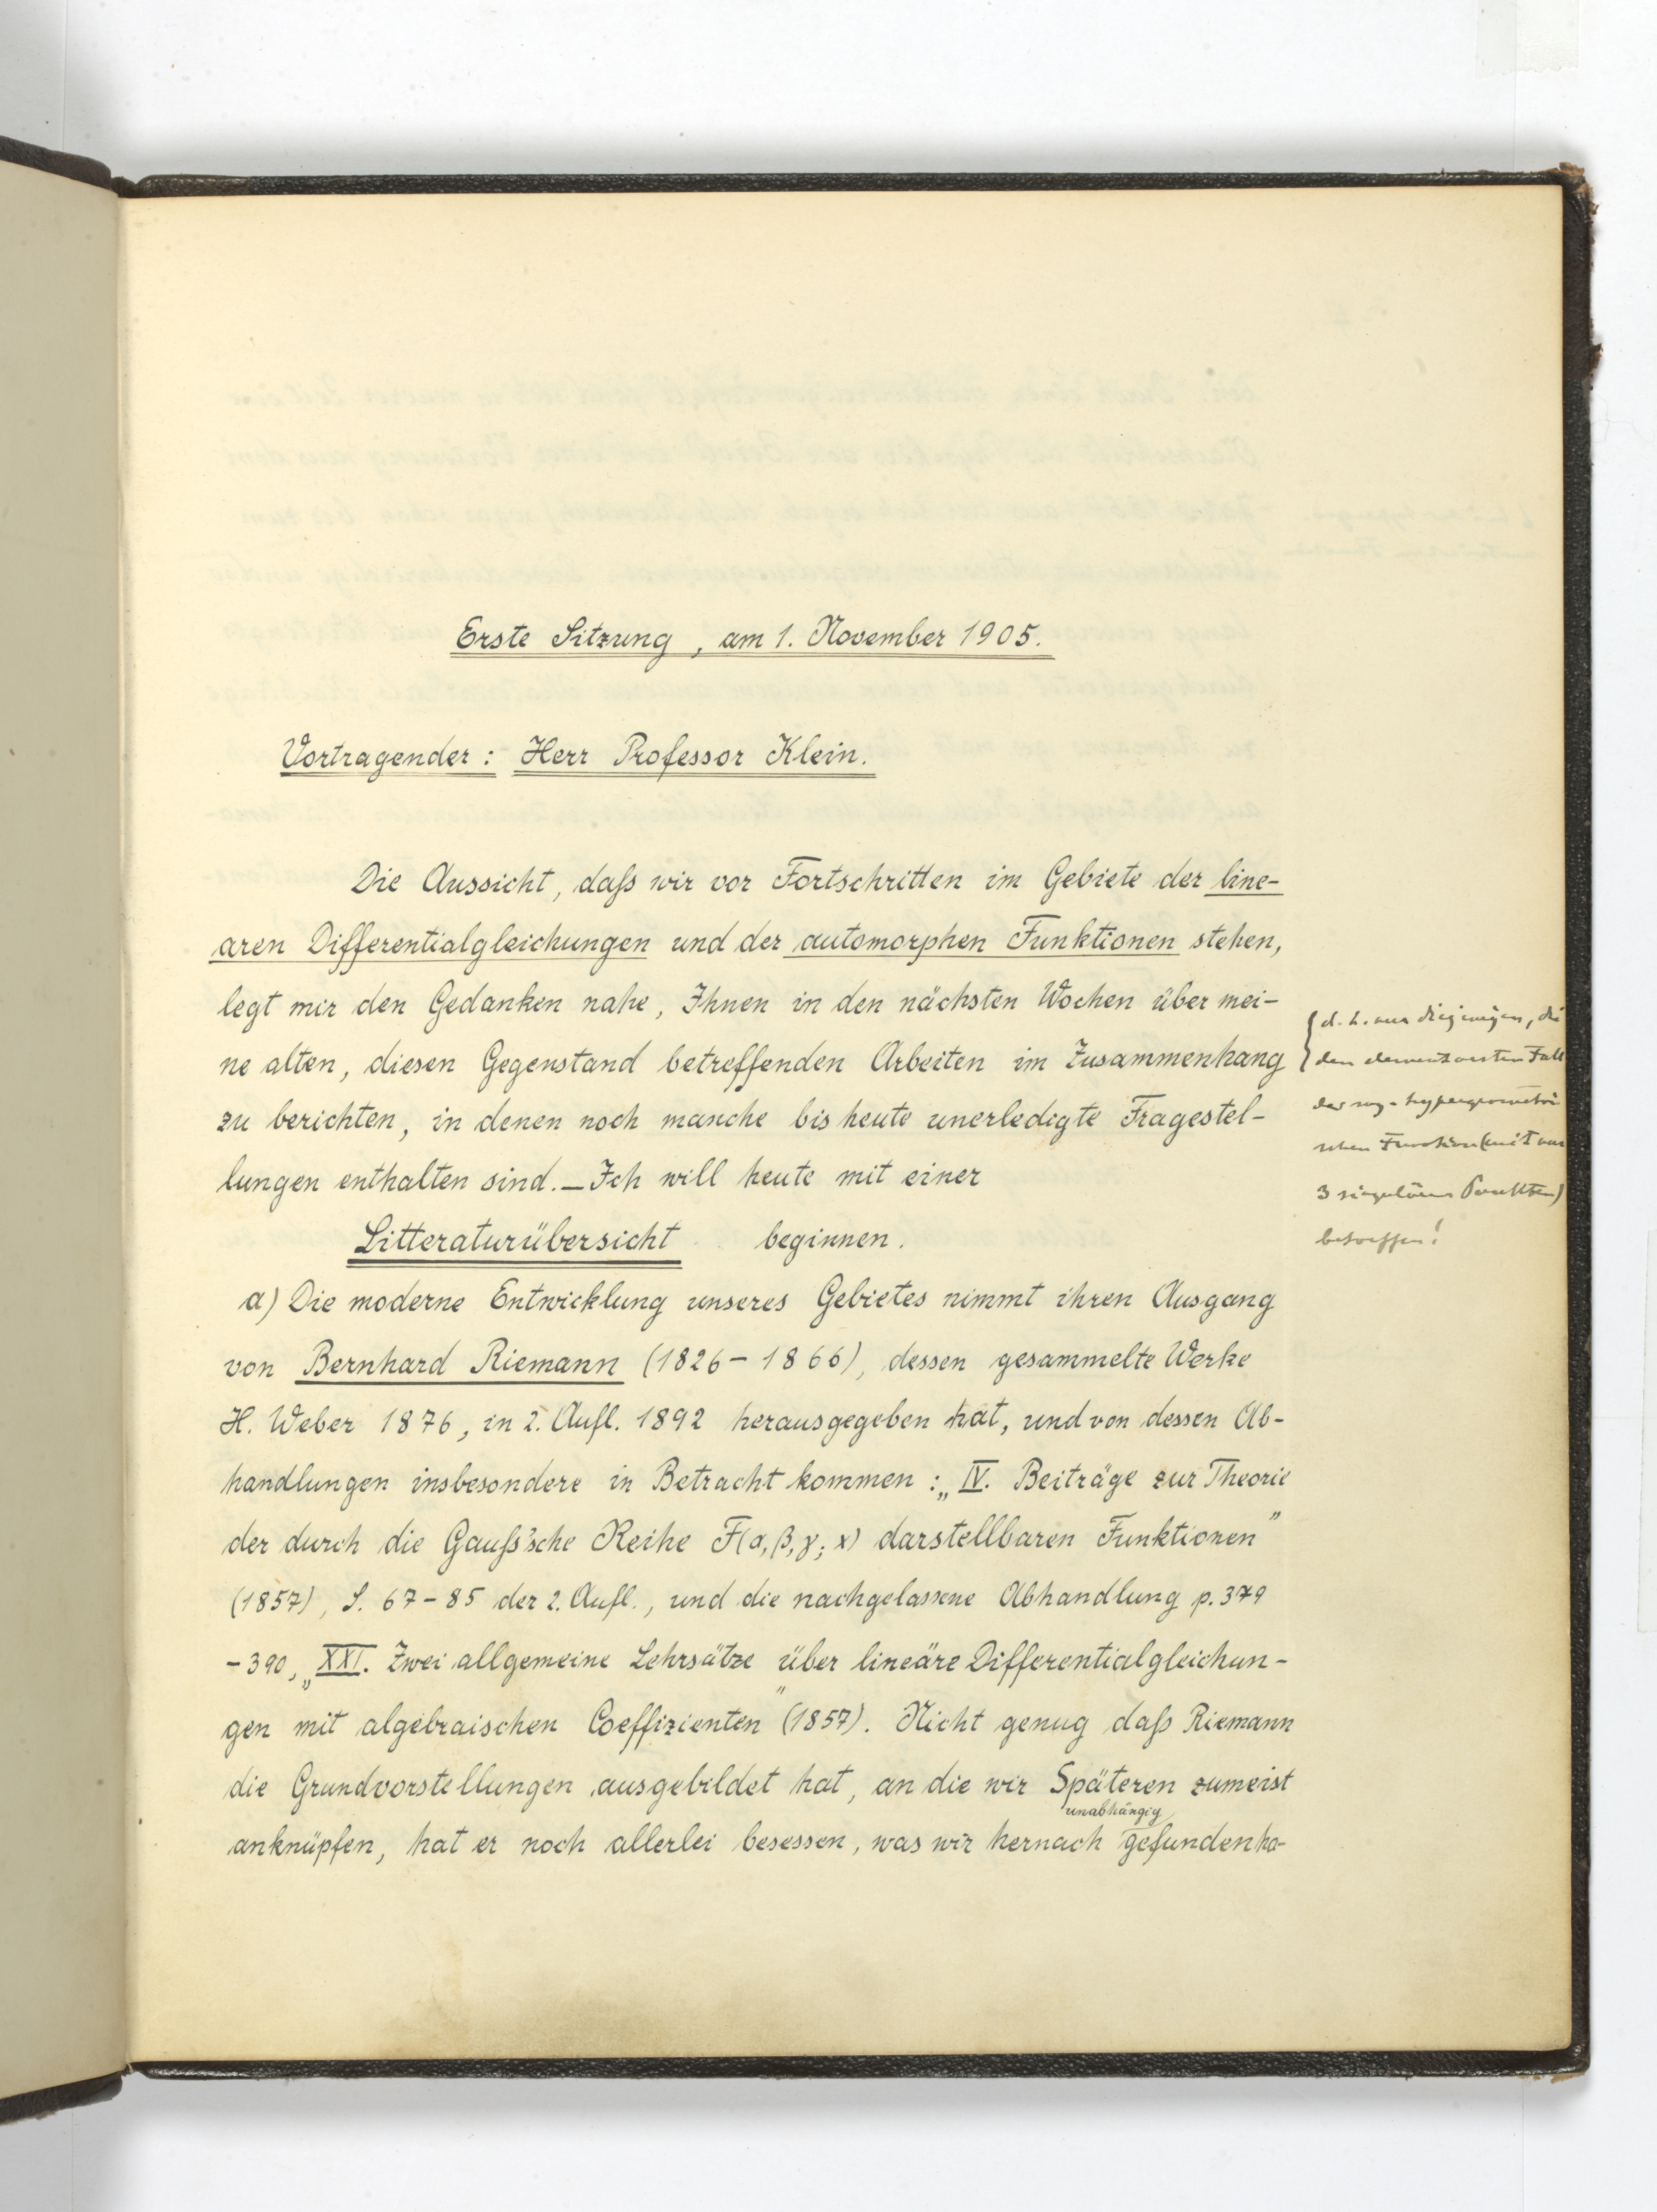 Erste Sitzung, am 1. November 1905.
Vortragender: Herr Professor Klein.
Die Aussicht, daß wir vor Fortschritten im Gebiete der line-
aren Differentialgleichungen und der automorphen Funktionen stehen,
legt mir den Gedanken nahe, Ihnen in den nächsten Wochen über mei-
ne alten, diesen Gegenstand betreffenden Arbeiten im Zusammenhang
zu berichten, in denen noch manche bis heute unerledigte Fragestel-
lungen enthalten sind. – Ich will heute mit einer
Litteraturübersicht beginnen.
a) Die moderne Entwicklung unseres Gebietes nimmt ihren Ausgang
von Bernhard Riemann (1826 – 1866), dessen gesammelte Werke
H. Weber 1876, in 2. Aufl. 1892 herausgegeben hat, und von dessen Ab-
handlungen insbesondere in Betracht kommen: „IV. Beiträge zur Theorie
der durch die Gauß'sche Reihe F(α, β, γ; x) darstellbaren Funktionen"
(1857), S. 67 – 85 der 2. Aufl., und die nachgelassene Abhandlung p. 379
– 390, „XXI. Zwei allgemeine Lehrsätze über lineäre Differentialgleichun-
gen mit algebraischen Coeffizienten" (1857). Nicht genug daß Riemann
die Grundvorstellungen ausgebildet hat, an die wir Späteren zumeist
unabhängig
anknüpfen, hat er noch allerlei besessen, was wir hernach gefunden ha-
{d. h. nur diejenigen, die
den elementarsten Fall
der sog. hypergeometri
schen Funktion (mit nur
3 singulären Punkten)
betreffen!